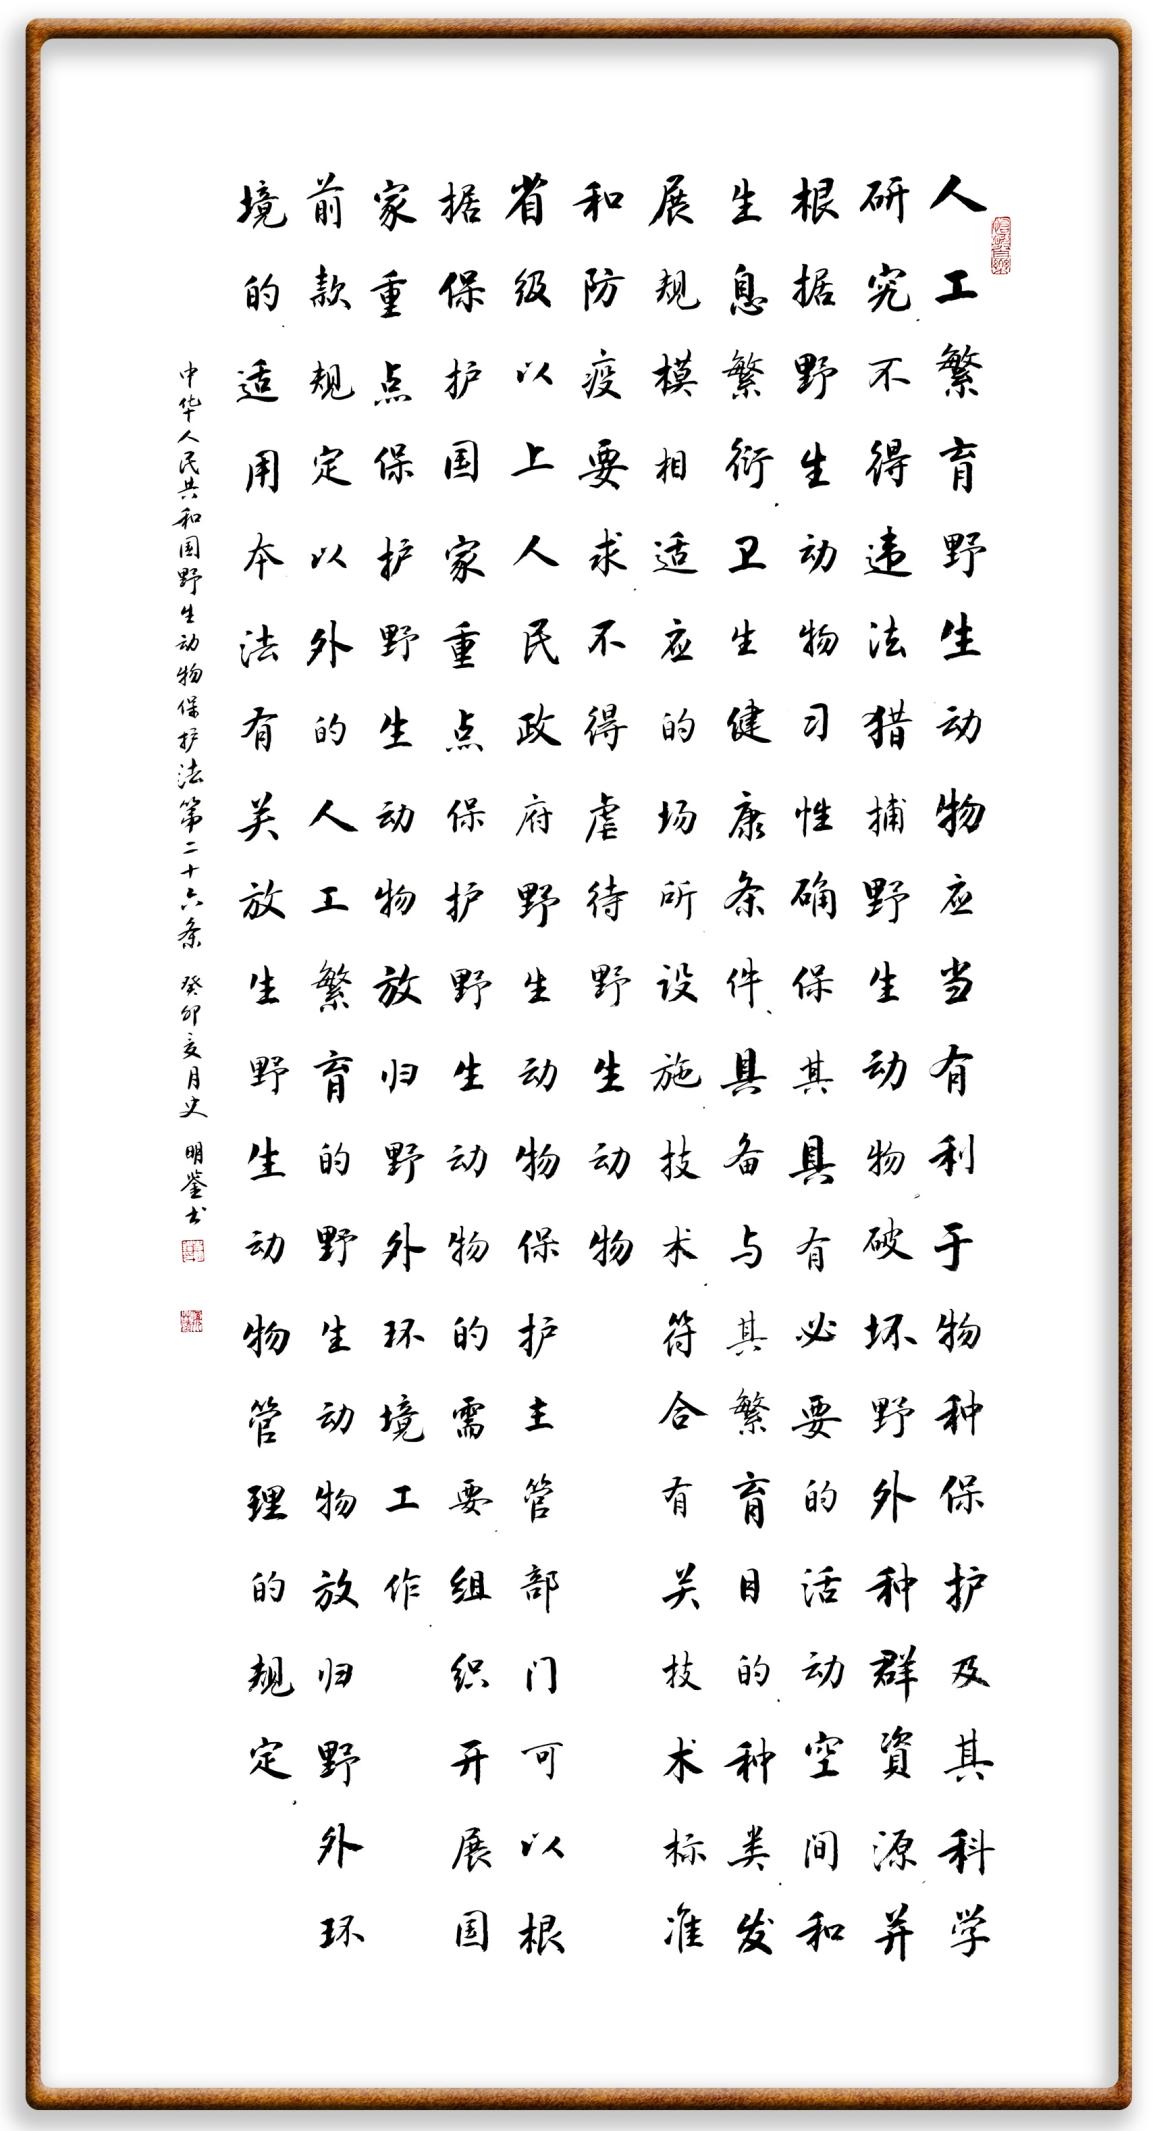 人工繁育野生动物应当有利于物种保护及其科学
研究不得违法猎捕野生动物破坏野外种群資源并
根据野生动物习性确保其具有必要的活动空间和
生息繁衍卫生健康条件具备与其繁育目的种类发
展规模相适应的场所设施技术符合有关技术标准
和防疫要求不得虐待野生动物
省级以上人民政府野生动物保护主管部门可以根
据保护国家重点保护野生动物的需要组织开展国
家重点保护野生动物放归野外环境工作
前款规定以外的人工繁育的野生动物放归野外环
境的适用本法有关放生野生动物管理的规定
中华人民共和国野生动物保护法第二十六条 癸卯亥月史 明鉴书